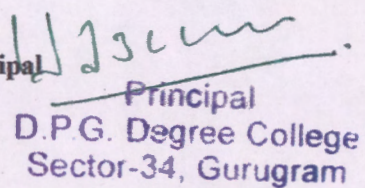 ipal
Principal
D.P.G. Degree College
Sector-34, Gurugram